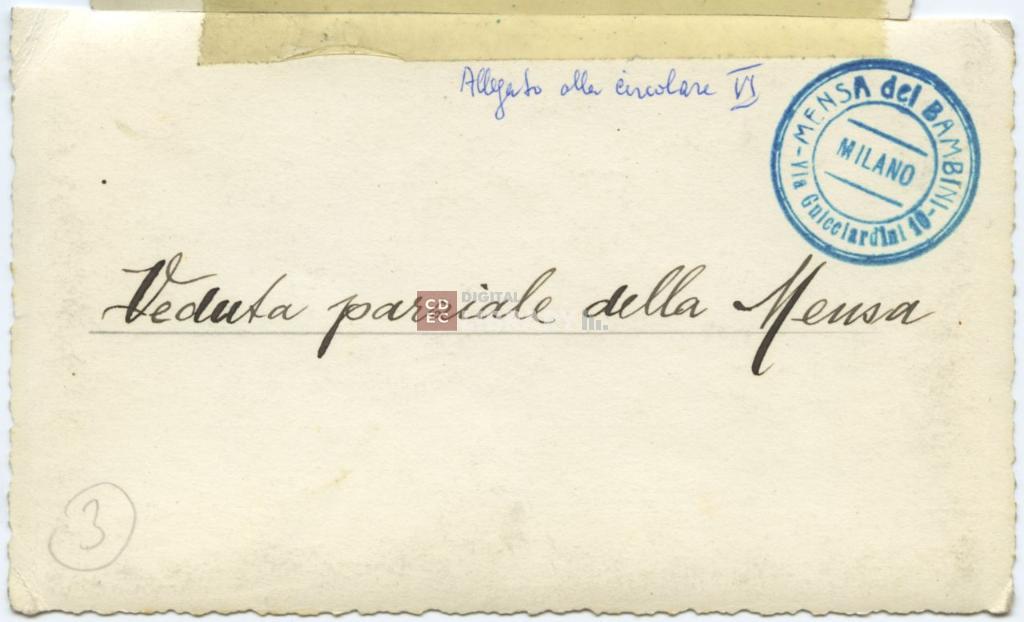 Allegato alla circolare VI
MENSA dei BAMBINI
MILANO
Via Guicciardini 10
Veduta parziale della Mensa
CD
EC
DIGITAL
3